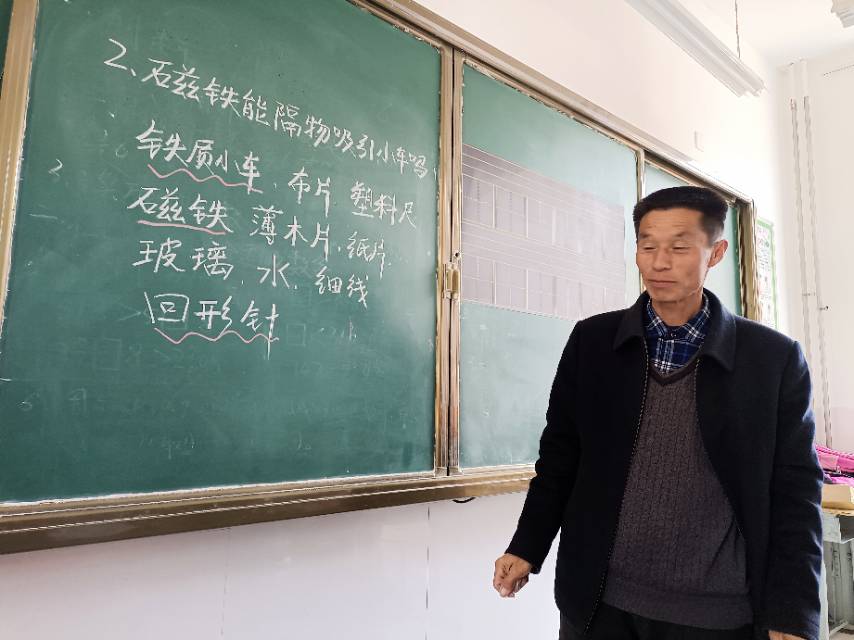 2、磁铁能隔物吸引小车吗
铁质小车、布片 塑料尺
磁铁 薄木片、纸片、
玻璃、水、细线
回形针